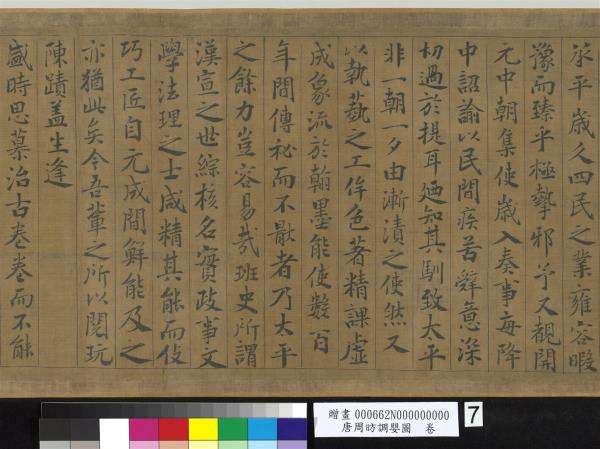 承平歲久四民之業雍容暇
豫而臻乎極摯邪予又觀開
元中朝集使歲入奏事每降
中詔諭以民間疾苦辭意深
切過於提耳廼知其馴致太平
非一朝一夕由漸漬之使然又
以執藝之工侔色著精課虛
成象流於翰墨能使數百
年間傳祕而不厭者乃太平
之餘力豈容易哉班史所謂
漢宣之世綜核名實政事文
學法理之士咸精其能而伎
巧工匠自元成間鮮能及之
亦猶此矣今吾輩之所以閱玩
陳蹟蓋生逢
盛時思慕治古惓惓而不能
贈畫 000662N000000000
唐周昉調嬰圖 卷
7